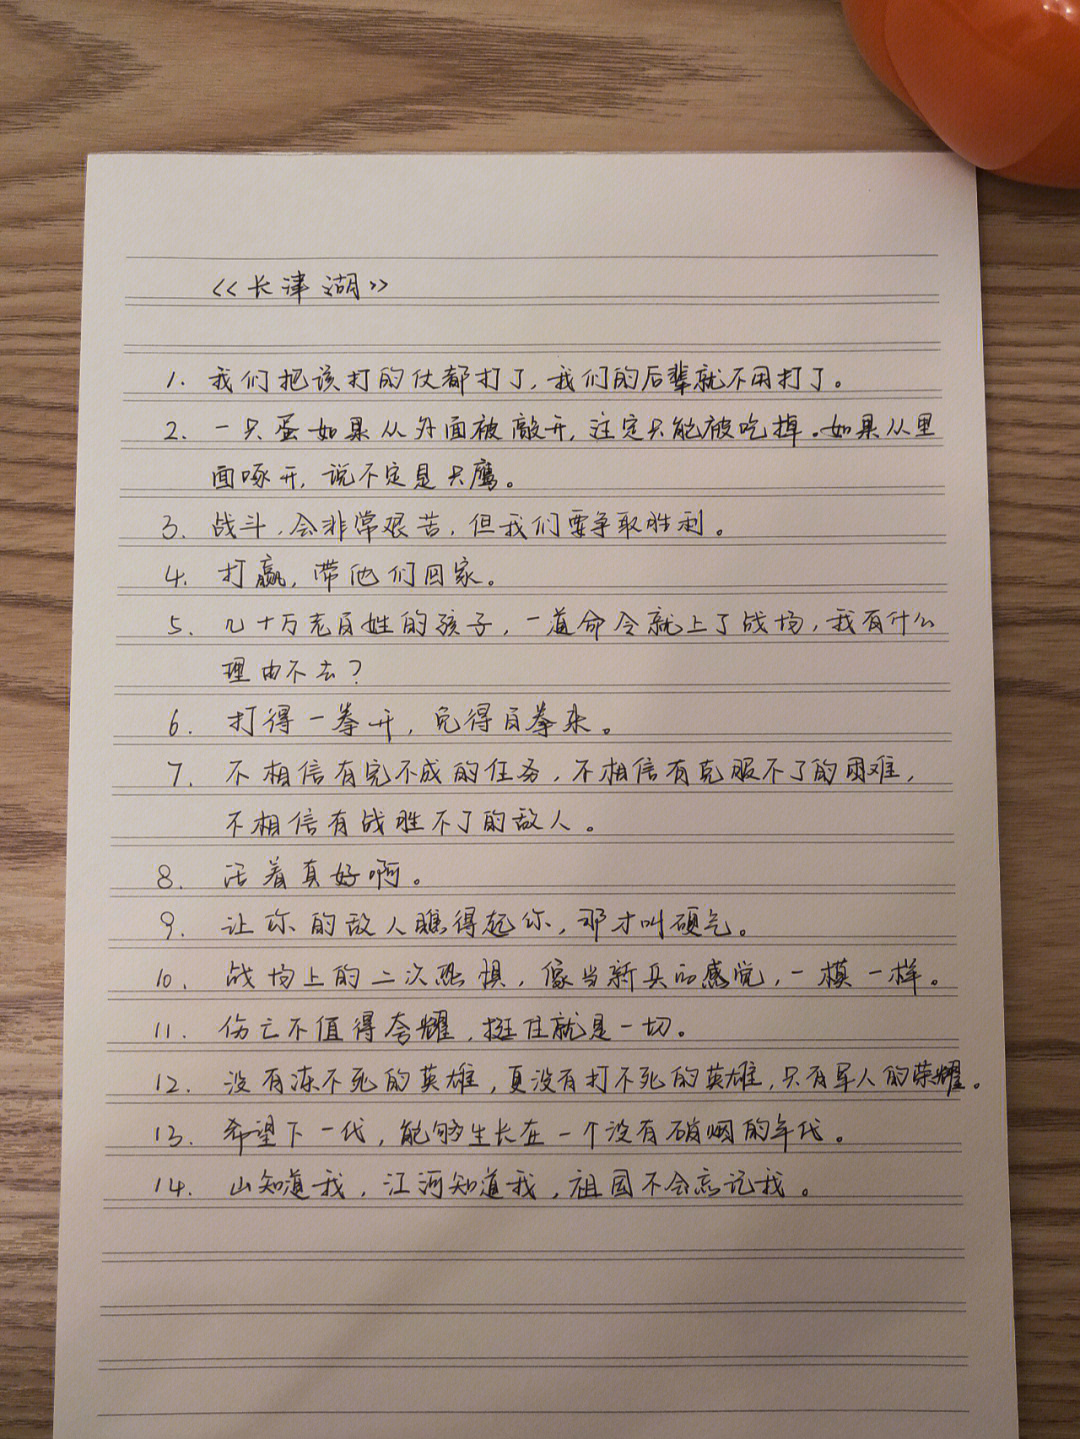 《长津湖》
1. 我们把该打的仗都打了,我们的后辈就不用打了。
2. 一只蛋如果从外面被敲开,注定只能被吃掉。如果从里
面啄开,说不定是只鹰。
3. 战斗,会非常艰苦,但我们要争取胜利。
4. 打赢,带他们回家。
5. 几十万老百姓的孩子,一道命令就上了战场,我有什么
理由不去?
6. 打得一拳开,免得百拳来。
7. 不相信有完不成的任务,不相信有克服不了的困难,
不相信有战胜不了的敌人。
8. 活着真好啊。
9. 让你的敌人瞧得起你,那才叫硬气。
10. 战场上的二次恐惧,像当新兵的感觉,一模一样。
11. 伤亡不值得夸耀,挺住就是一切。
12. 没有冻不死的英雄,更没有打不死的英雄,只有军人的荣耀。
13. 希望下一代,能够生长在一个没有硝烟的年代。
14. 山知道我,江河知道我,祖国不会忘记我。